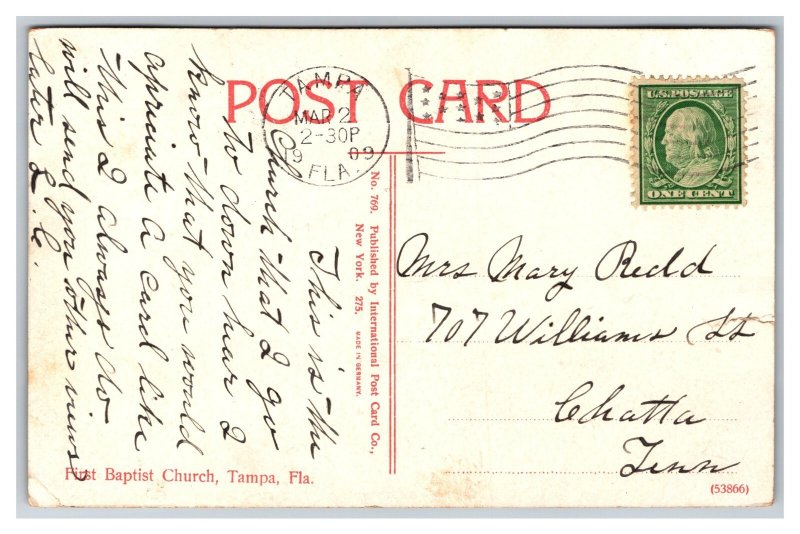 POST CARD
TAMPA
MAR 2
2-30P
1909
FLA.
U.S. POSTAGE
ONE CENT
This is the
Church that I go
to down hear I
know that you would
apriciate a card like
this I always do
will send you other views
later L.C.
No. 769. Published by International Post Card Co.,
New York. 275. MADE IN GERMANY.
Mrs Mary Redd
707 Williams St
Chatta
Tenn
First Baptist Church, Tampa, Fla.
(53866)